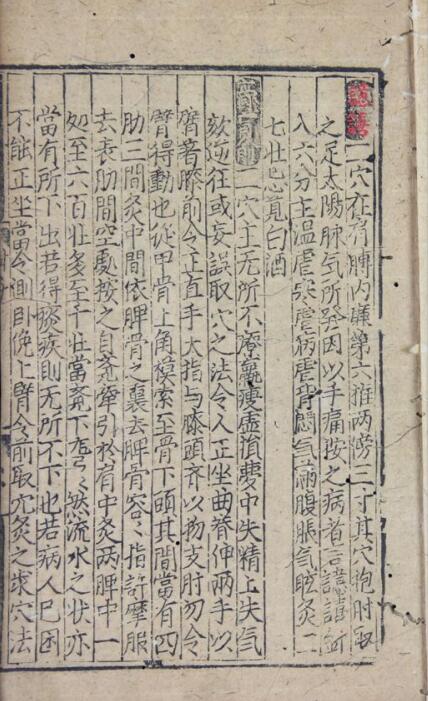 譩譆二穴在肩膊内廉第六椎两傍三寸其穴抱肘取
之足太陽脉气所發因以手痛按之病者言譩譆
入六分主温瘧寒瘧病瘧背悶气滿腹脹气眩灸二
七壯忌莧白酒
膏肓俞二穴主无所不療羸瘦虛損夢中失精上失气
欬逆狂或妄誤取穴之法令人正坐曲脊伸兩手以
臂著膝前令正直手大指与膝頭齊以物支肘勿令
臂得動也從甲骨上角摸索至骨下頭其間當有四
肋三間灸中間依脾骨之裏去脾骨容、指許摩服
去表肋間空處按之自覺牽引於肩中灸两脾中一
処至六百壮多至千壮當覺下、然流水之状亦
當有所下出若得痰疾則无所不下也若病人已困
不能正坐當令側卧挽上臂令前取穴灸之求穴法